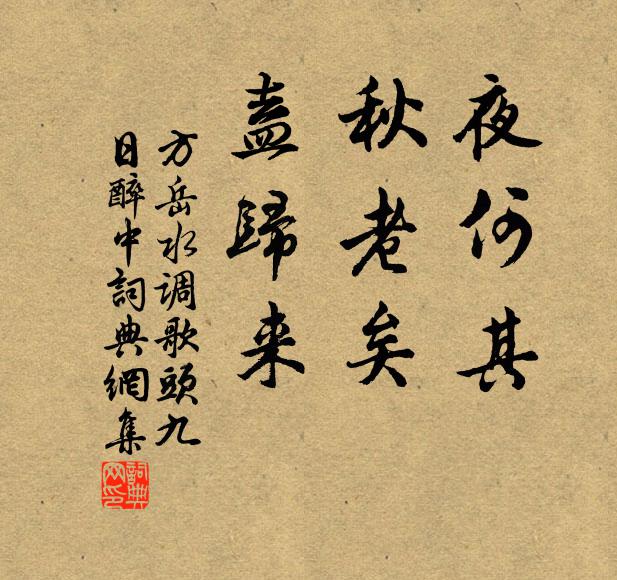 夜何其
秋老矣
盍歸来
方岳水调歌頭九
日醉中詞典網集
詞典网印